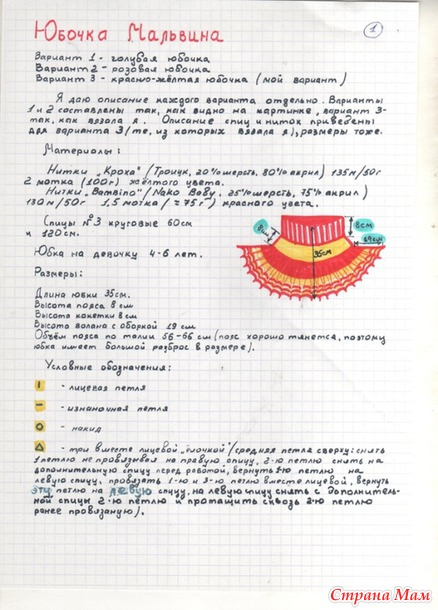 Юбочка Мальвина
1
Вариант 1 - голубая юбочка
Вариант 2 - розовая юбочка
Вариант 3 - красно-жёлтая юбочка (мой вариант)
Я даю описание каждого варианта отдельно. Варианты
1 и 2 составлены так, как видно на картинке, вариант 3-
так, как вязала я. Описание спиц и ниток приведены
для варианта 3 (те, из которых вязала я), размеры тоже.
Материалы:
Нитки „Кроха" (Троицк, 20% шерсть, 80% акрил) 135м/50г
2 мотка (100г) жёлтого цвета.
Нитки „Bambino" (Nako Baby, 25% шерсть, 75% акрил)
130м/50г 1,5 мотка (≈75г) красного цвета.
Спицы №3 круговые 60см
и 120см.
8см
8см
35см
19см
Юбка на девочку 4-6 лет.
Размеры:
Длина юбки 35см.
Высота пояса 8 см
Высота кокетки 8 см
Высота волана с оборкой 19 см
Объём пояса по талии 56-66 см (пояс хорошо тянется, поэтому
юбка имеет большой разброс в размере).
Условные обозначения:
I - лицевая петля
- - изнаночная петля
О - накид
Δ - три вместе лицевой „елочкой" (средняя петля сверху: снять
1 петлю не провязывая на правую спицу, 2-ю петлю снять на
дополнительную спицу перед работой, вернуть 1-ю петлю на
левую спицу, провязать 1-ю и 3-ю петлю вместе лицевой, вернуть
эту петлю на левую спицу, на левую спицу снять с дополнитель-
ной спицы 2-ю петлю и протащить сквозь 2-ю петлю
ранее провязаную).
Страна Мам